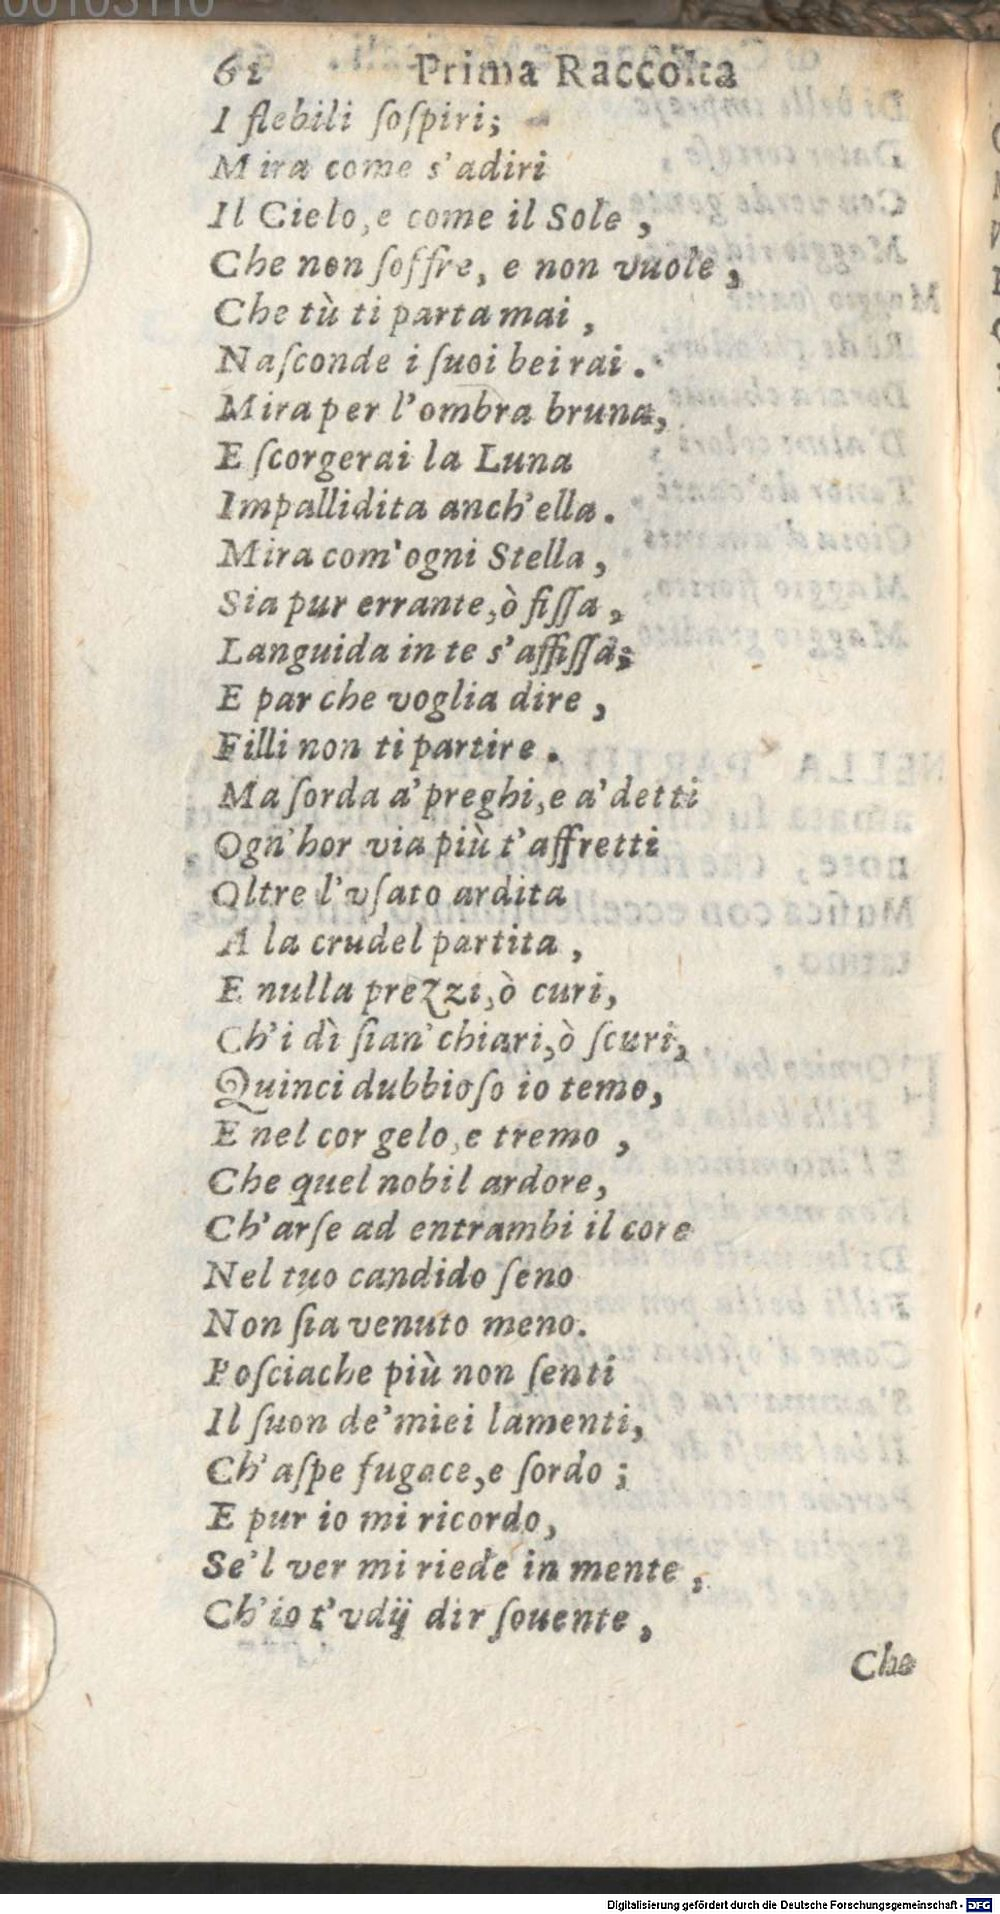 00103110
61 Prima Raccolta
I flebili ſoſpiri;
Mira come s'adiri
Il Cielo, e come il Sole,
Che non ſoffre, e non vuole,
Che tù ti parta mai,
Naſconde i ſuoi bei rai.
Mira per l'ombra bruna,
E ſcorgerai la Luna
Impallidita anch'ella.
Mira com'ogni Stella,
Sia pur errante, ò fiſſa,
Languida in te s'affiſſa;
E par che voglia dire,
Filli non ti partire.
Ma ſorda a' preghi, e a' detti
Ogn'hor via più t'affretti
Oltre l'vſato ardita
A la crudel partita,
E nulla prezzi, ò curi,
Ch'i dì ſian' chiari, ò ſcuri,
Quinci dubbioſo io temo,
E nel cor gelo, e tremo,
Che quel nobil ardore,
Ch'arſe ad entrambi il core
Nel tuo candido ſeno
Non ſia venuto meno.
Poſciache più non ſenti
Il ſuon de' miei lamenti,
Ch'aſpe fugace, e ſordo;
E pur io mi ricordo,
Se'l ver mi riede in mente,
Ch'io t'vdij dir ſouente,
Che
Digitalisierung gefördert durch die Deutsche Forschungsgemeinschaft - DFG